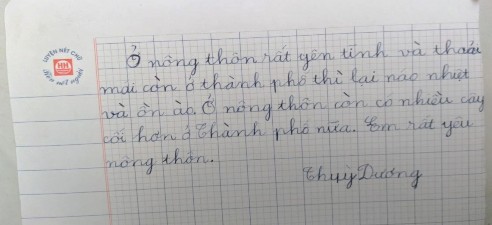 LUYỆN NÉT CHỮ
HH
Rèn nết người
Ở nông thôn rất yên tĩnh và thoải
mái còn ở thành phố thì lại náo nhiệt
và ồn ào. Ở nông thôn còn có nhiều cây
cối hơn ở thành phố nữa. Em rất yêu
nông thôn.
Thuỳ Dương